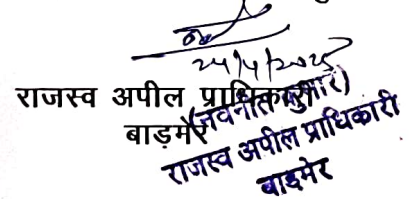 24/4/2025
राजस्व अपील प्राधिकारी
बाड़मेर
(नवनीत कुमार)
राजस्व अपील प्राधिकारी
बाड़मेर